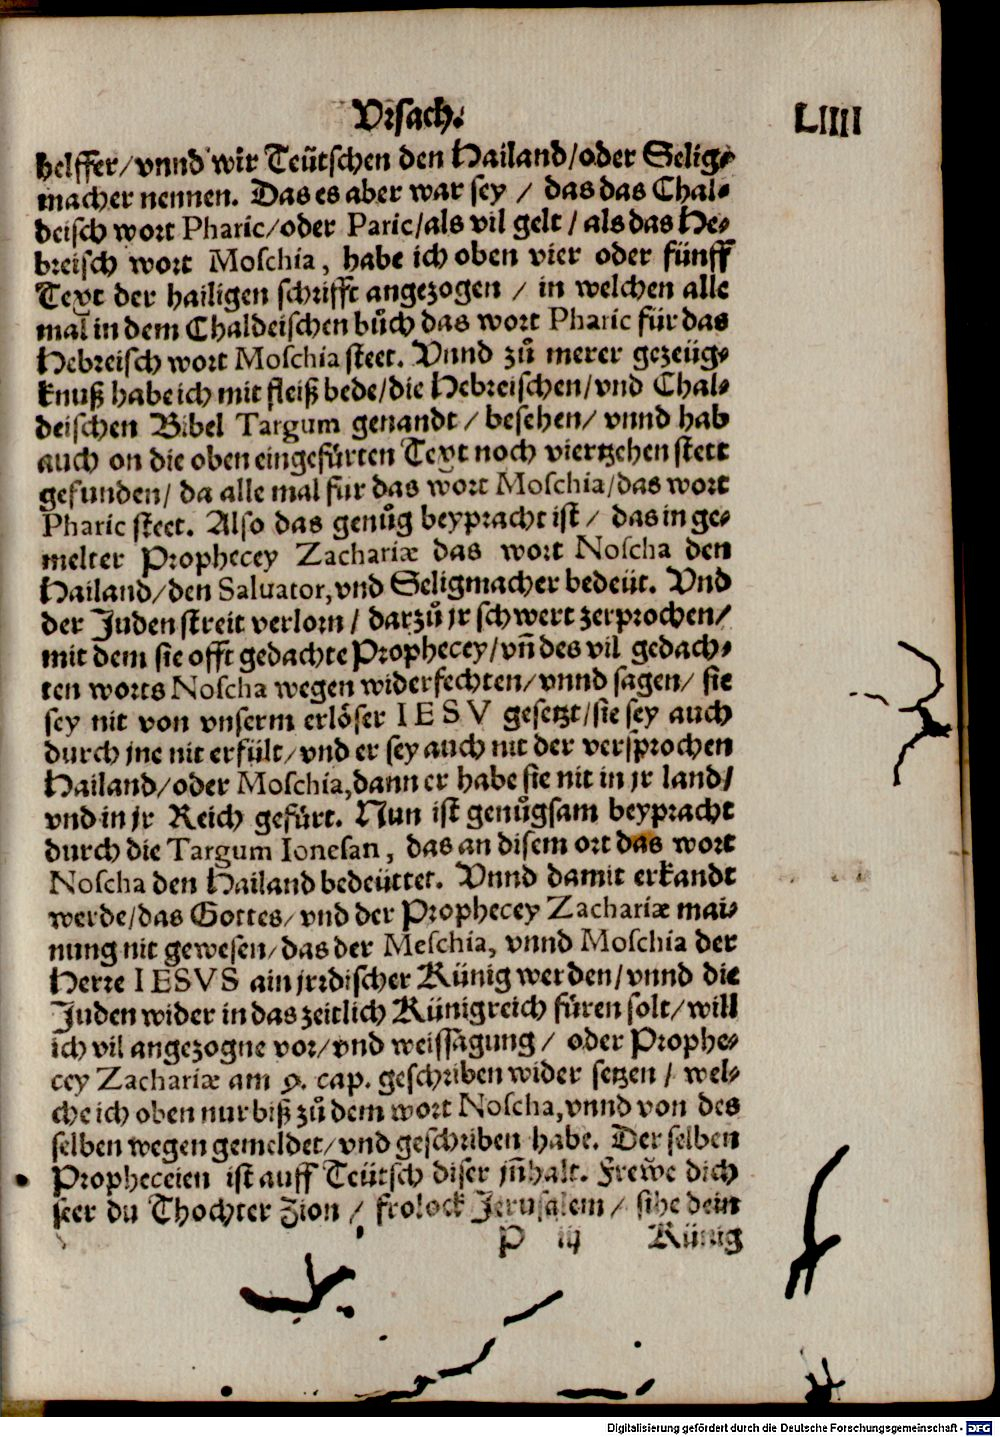 Vrsach. LIIII
helffer/vnnd wir Teütschen den Hailand/oder Selig⸗
macher nennen. Das es aber war sey / das das Chal⸗
deisch wort Pharic/oder Paric/als vil gelt / als das He⸗
breisch wort Moschia, habe ich oben vier oder fünff
Text der hailigen schrifft angezogen / in welchen alle
mal in dem Chaldeischen bůch das wort Pharic für das
Hebreisch wort Moschia steet. Vnnd zů merer gezeüg⸗
knuß habe ich mit fleiß bede/die Hebreischen/vnd Chal⸗
deischen Bibel Targum genandt / besehen/ vnnd hab
auch on die oben eingefürten Text noch viertzehen stett
gefunden/ da alle mal für das wort Moschia/das wort
Pharic steet. Also das genůg beypracht ist / das in ge⸗
melter Prophecey Zachariæ das wort Noscha den
Hailand/den Saluator,vnd Seligmacher bedeüt. Vnd
der Juden streit verlorn / darzů jr schwert zerprochen/
mit dem sie offt gedachte Prophecey/vñ des vil gedach⸗
ten worts Noscha wegen widerfechten/vnnd sagen/ sie
sey nit von vnserm erlöser IESV gesetzt/sie sey auch
durch jne nit erfült/vnd er sey auch nit der versprochen
Hailand/oder Moschia,dann er habe sie nit in jr land/
vnd in jr Reich gefürt. Nun ist genůgsam beypracht
durch die Targum Ionesan, das an disem ort das wort
Noscha den Hailand bedeüttet. Vnnd damit erkandt
werde/das Gottes/vnd der Prophecey Zachariæ mai⸗
nung nit gewesen/das der Meschia, vnnd Moschia der
Herre IESVS ain jrrdischer Künig werden/vnnd die
Juden wider in das zeitlich Künigreich füren solt/will
ich vil angezogne vor/vnd weissagung / oder Prophe⸗
cey Zachariæ am 9. cap. geschriben wider setzen / wel⸗
che ich oben nur biß zů dem wort Noscha,vnnd von des
selben wegen gemeldet/vnd geschriben habe. Der selben
Propheceien ist auff Teütsch diser jñhalt. Frewe dich
seer du Thochter Zion / frolock Jerusalem / sihe dein
P iij Künig
Digitalisierung gefördert durch die Deutsche Forschungsgemeinschaft - DFG